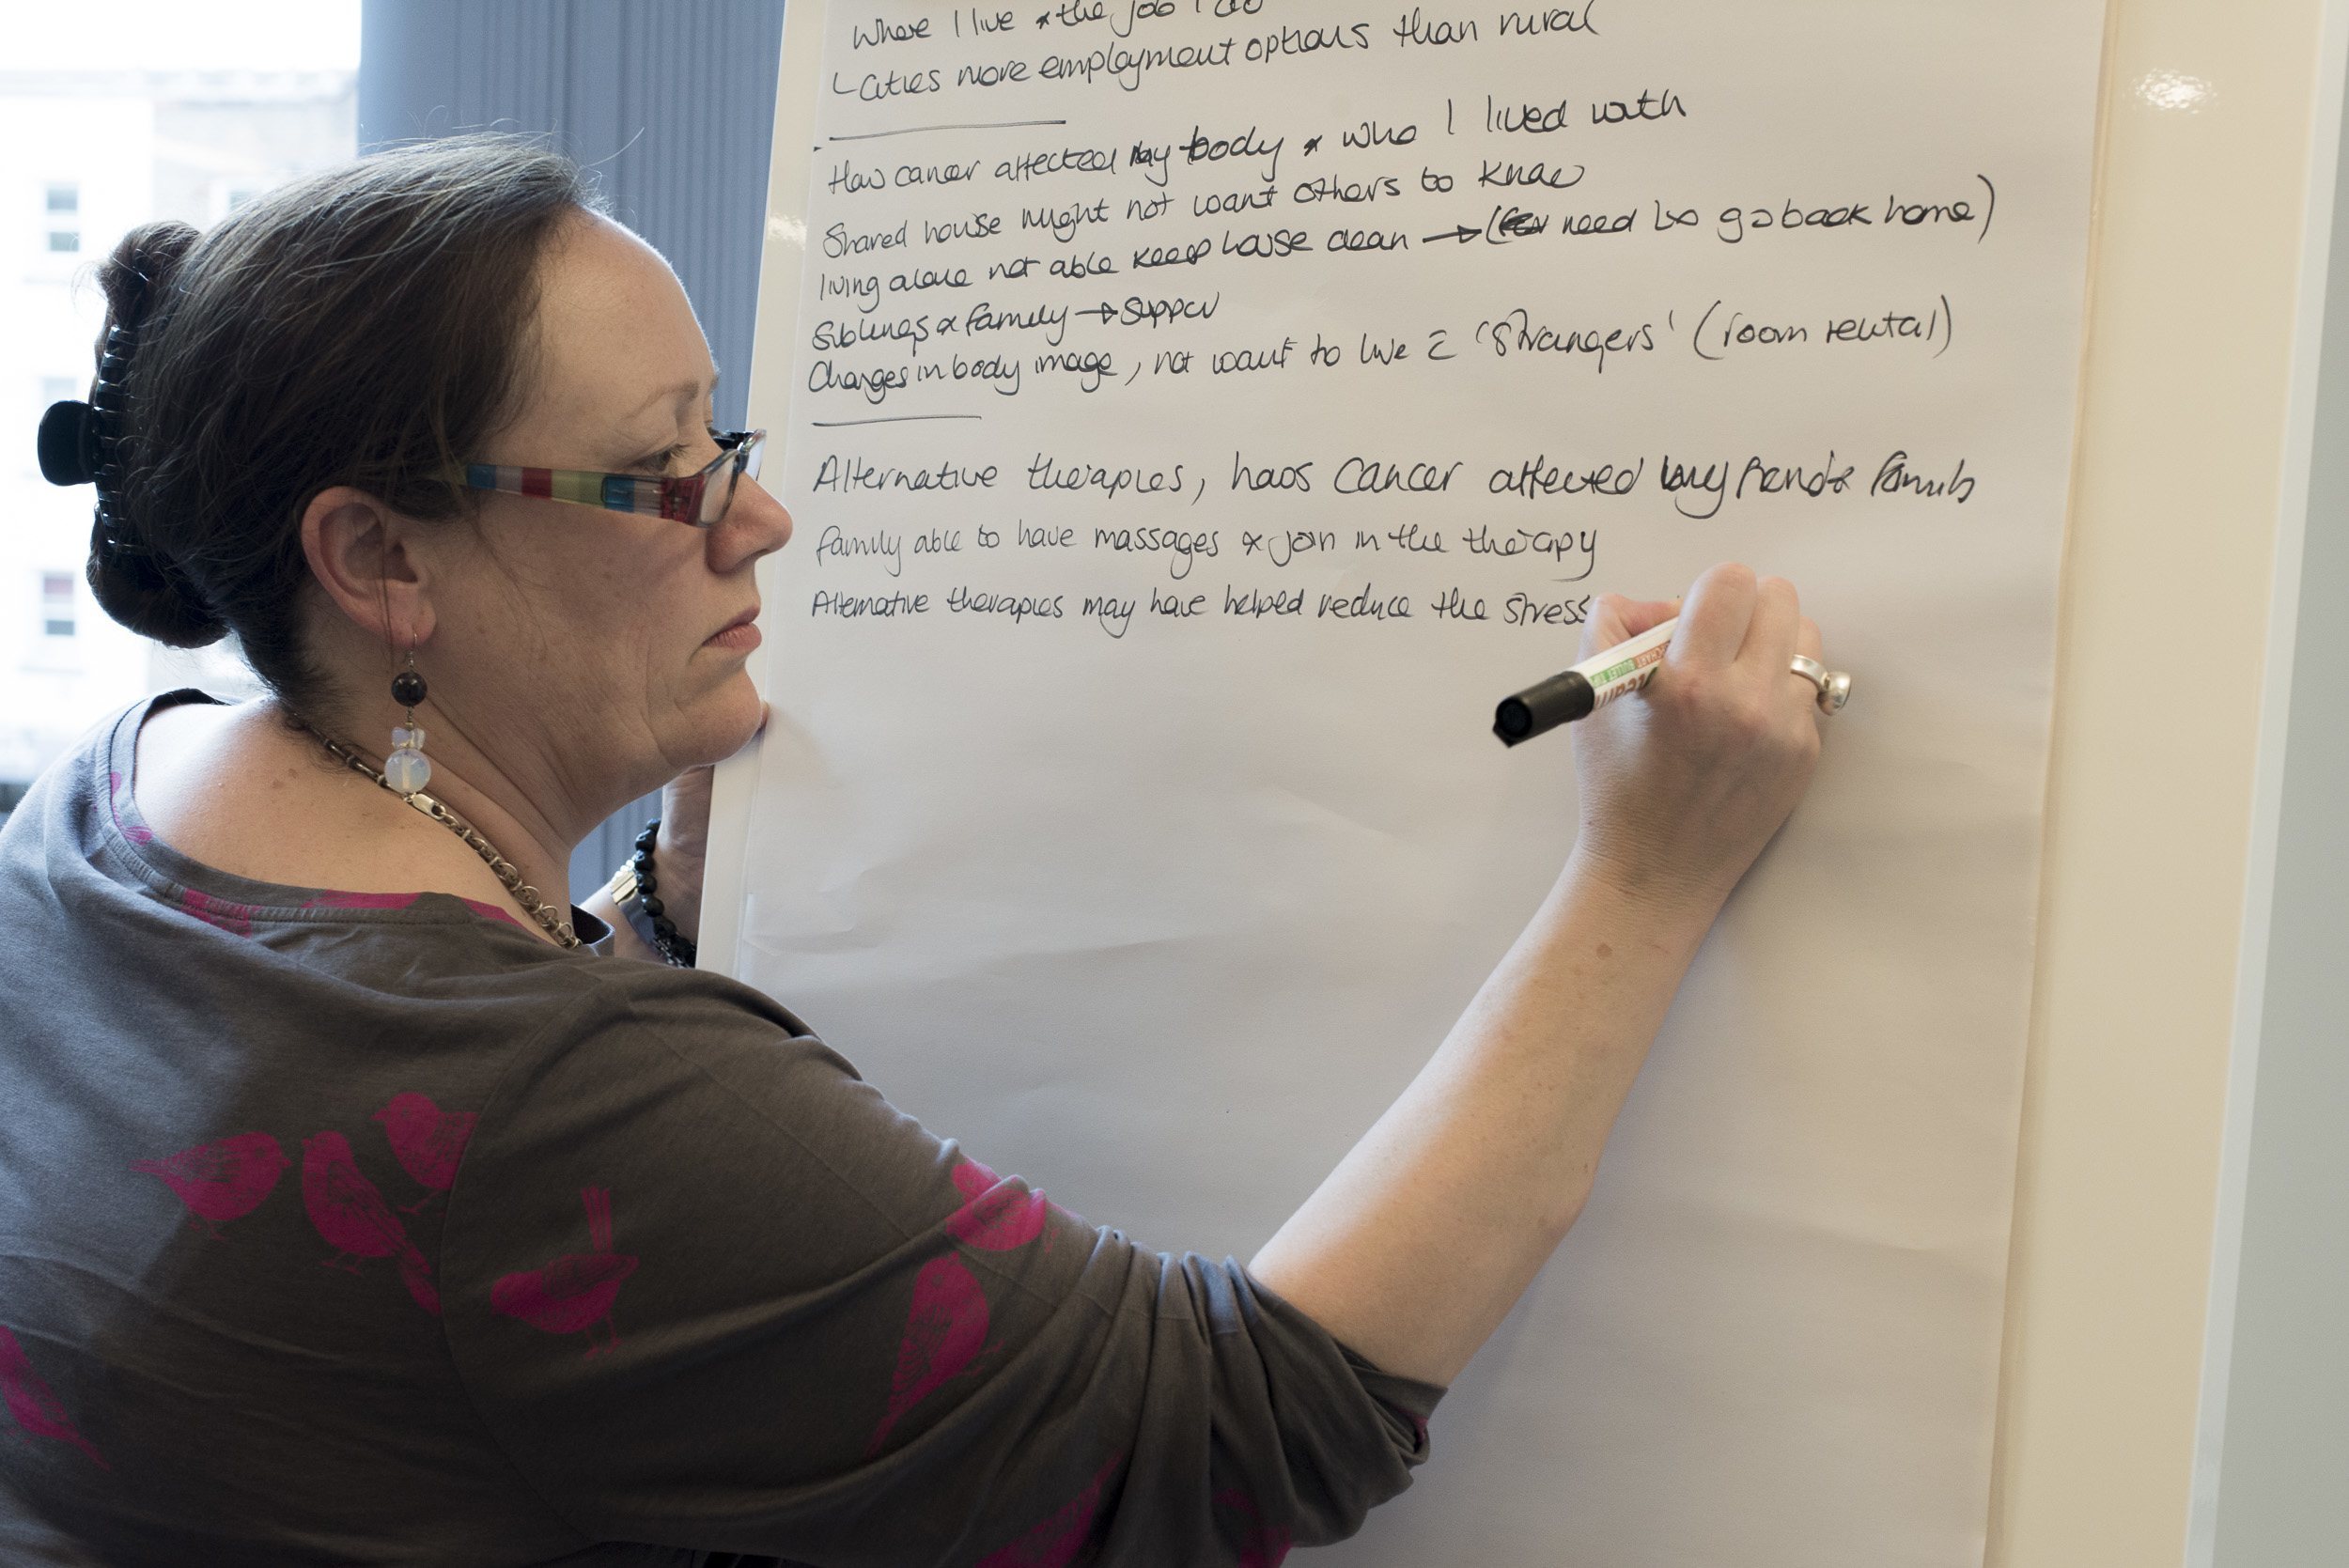 Where I live & the job I do
Cities more employment options than rural
How cancer affected my body & who I lived with
Shared house might not want others to know
living alone not able keep house clean → ( need to go back home)
Siblings & family → suppor
Changes in body image, not want to live c̄ 'strangers' (room rental)
Alternative therapies, has cancer affected my friends family
family able to have massages & join in the therapy
Alternative therapies may have helped reduce the stress
BULLET TIP